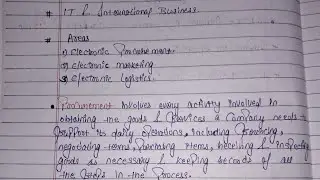 # IT & International Business.
# Areas
1) Electronic Procurement.
2) Electronic marketing
3) Electronic logistics.
• Procurement involves every activity involved in
obtaining the goods & services a company needs to
support its daily operations, including sourcing,
negotiating terms, purchasing items, receiving & inspecting
goods as necessary & keeping records of all
the steps in the process.